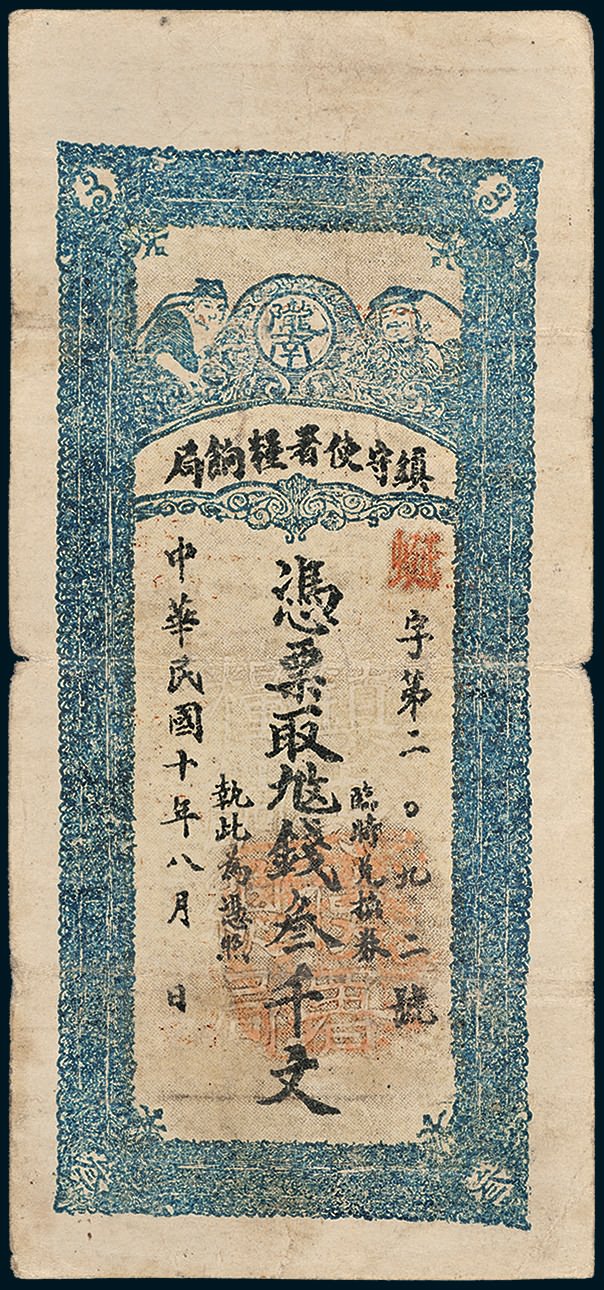 隴南
鎮守使署糧餉局
字第二〇九二號
臨時兌換券
憑票取 錢叁千文
執此為憑照
中華民國十年八月 日